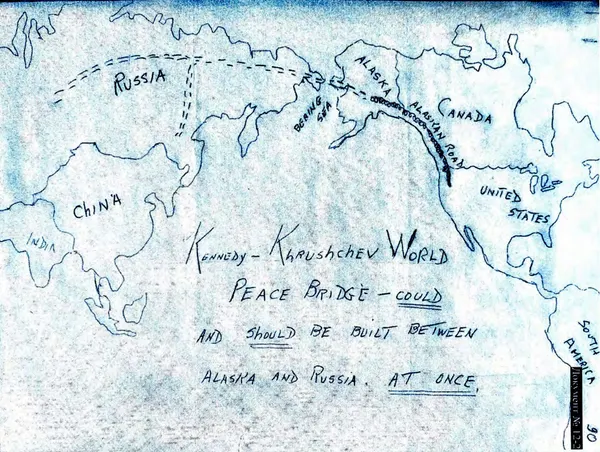 RUSSIA
BERING
SEA
ALASKA
ALASKAN ROAD
CANADA
UNITED
STATES
CHINA
INDIA
KENNEDY - KHRUSHCHEV WORLD
PEACE BRIDGE - COULD
AND SHOULD BE BUILT BETWEEN
ALASKA AND RUSSIA. AT ONCE.
SOUTH
AMERICA
90